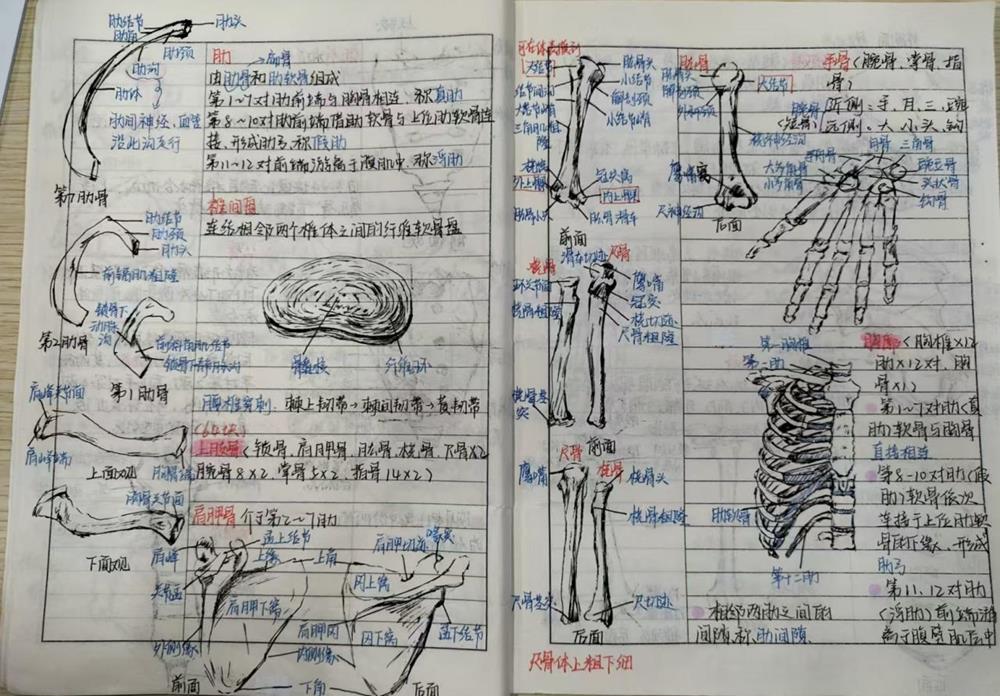 肋结节
肋头
肋角
肋颈
肋沟
肋体
肋间神经、血管
沿此沟走行
第7肋骨
肋
扁骨
由肋骨和肋软骨组成
第1~7对肋前端与胸骨相连、称真肋
第8~10对肋前端借助软骨与上位肋软骨连
接,形成肋弓,称假肋
第11~12对前端游离于腹肌中,称浮肋
椎间盘
连结相邻两个椎体之间的纤维软骨盘
肋结节
肋颈
肋头
前锯肌粗隆
第2肋骨
锁骨下
动脉
沟
前斜角肌结节
锁骨下静脉沟
第1肋骨
髓核
纤维环
腰椎穿刺:棘上韧带→棘间韧带→黄韧带
(64块)
上肢骨(锁骨、肩胛骨、肱骨、桡骨、尺骨X2
腕骨8X2、掌骨5X2、指骨14X2)
肩峰关节面
肩峰端
上面观
胸骨端
胸骨关节面
下面观
肩胛骨 介于第2~7肋
肩峰
盂上结节
上缘
上角
肩胛切迹
喙突
关节盂
冈上窝
肩胛下窝
肩胛冈
冈下窝
盂下结节
外侧缘
内侧缘
前面
下角
后面
可在体表摸到
大结节
肱骨头
小结节
结节间沟
解剖颈
大结节嵴
小结节嵴
三角肌粗隆
桡窝
外上髁
冠突窝
内上髁
肱骨小头
肱骨滑车
前面
肱骨
肱骨头
解剖颈
外科颈
大结节
桡神经沟
鹰嘴窝
尺神经沟
后面
手骨(腕骨、掌骨、指
骨)
腕骨
(短骨)
近侧:手、月、三、豌
远侧:大、小、头、钩
手舟骨
月骨
三角骨
大多角骨
小多角骨
豌豆骨
头状骨
钩骨
滑车切迹
桡骨
尺骨
环状关节面
鹰嘴
冠突
桡骨粗隆
桡切迹
尺骨粗隆
桡骨茎突
前面
尺骨
桡骨
鹰嘴
桡骨头
桡骨粗隆
尺骨茎突
尺切迹
后面
尺骨体上粗下细
第一胸椎
第一肋
肋软骨
第十二肋
胸廓(胸椎X12
肋X12对、胸
骨X1)
第1~7对肋(真
肋)软骨与胸骨
直接相连
第8-10对肋(假
肋)软骨依次
连接于上位肋软
骨的下缘,形成
肋弓
第11、12对肋
(浮肋)前端游
离于腹壁肌层中
相邻两肋之间的
间隙称肋间隙